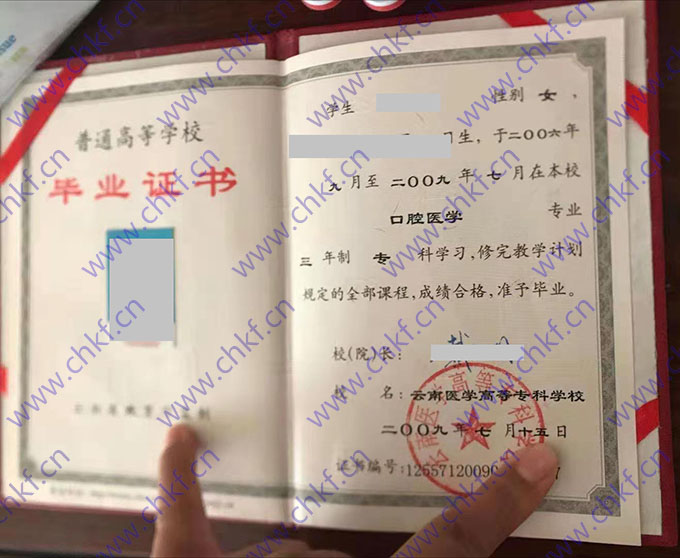 普通高等学校
毕业证书
学生 性别 女,
生,于二〇〇六年
九月至 二〇〇九 年 七 月在本校
口腔医学 专业
三 年制 专 科学习,修完教学计划
规定的全部课程,成绩合格,准予毕业。
校(院)长:
校 名: 云南医学高等专科学校
二〇〇九 年 七 月 十五 日
证书编号:125571200
云南医学高等专科学校
www.chkf.cn